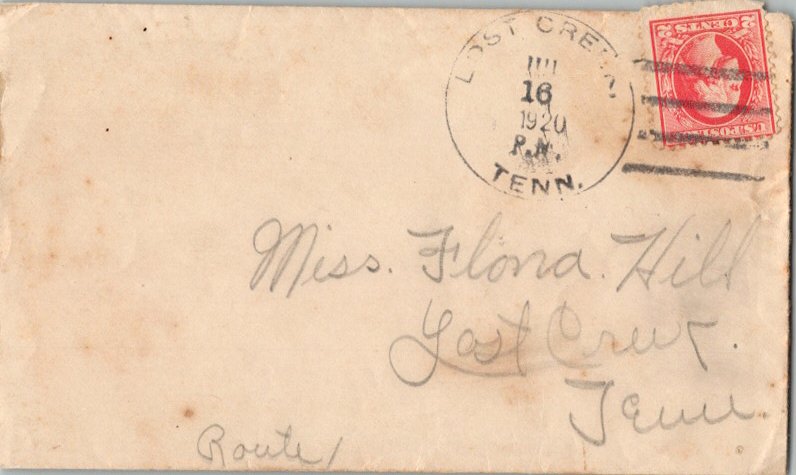 LOST CREEK,
JUL
16
1920
P.M.
TENN.
2 CENTS 2
U.S. POSTAGE
Miss. Flora. Hill
Lost Creek.
Tenn.
Route 1